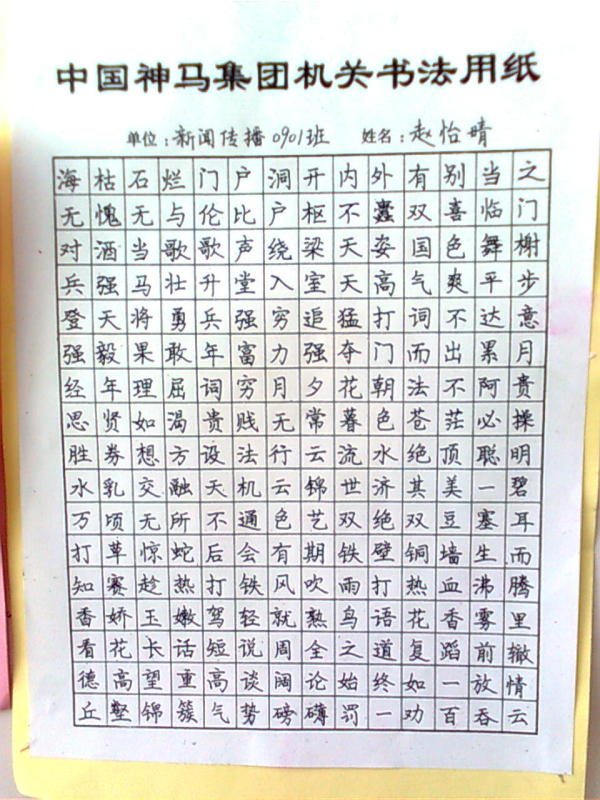 中国神马集团机关书法用纸
单位:新闻传播0901班 姓名:赵怡晴
海枯石烂门户洞开内外有别当之
无愧无与伦比户枢不蠹双喜临门
对酒当歌歌声绕梁天姿国色舞榭
兵强马壮升堂入室天高气爽平步
登天将勇兵强穷追猛打词不达意
强毅果敢年富力强夺门而出累月
经年理屈词穷月夕花朝法不阿贵
思贤如渴贵贱无常暮色苍茫必操
胜券想方设法行云流水绝顶聪明
水乳交融天机云锦世济其美一碧
万顷无所不通色艺双绝双豆塞耳
打草惊蛇后会有期铁壁铜墙生而
知赛趁热打铁风吹雨打热血沸腾
香娇玉嫩驾轻就熟鸟语花香雾里
看花长话短说周全之道复蹈前辙
德高望重高谈阔论始终如一放情
丘壑锦簇气势磅礴罚一劝百吞云